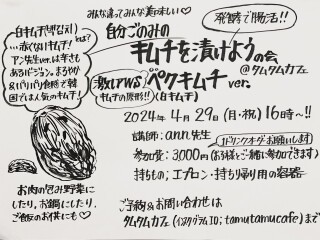 みんな違ってみんな美味しい♡
発酵で腸活!!
自分ごのみの
キムチを漬けようの会
@タムタムカフェ
白キムチ(백김치)とは?
…赤くないキムチ!
アン先生ver.は辛さも
あるバージョン。まろやか
&パリパリ食感で韓
国では人気のキムチ!
激レアWS ペクキムチ ver.
キムチの原形!! (白キムチ)
2024年4月29日(月・祝)16時〜!!
講師:ann.先生
1ドリンクオーダーお願いします
参加費:3,000円(お子様とご一緒に参加できます)
持ちもの;エプロン・持ち帰り用の容器
お肉の包み野菜に
したり、お鍋にしたり、
ご飯のお供にも♡
ご予約&お問い合わせは
タムタムカフェ(インスタグラムID;tamutamucafe)まで